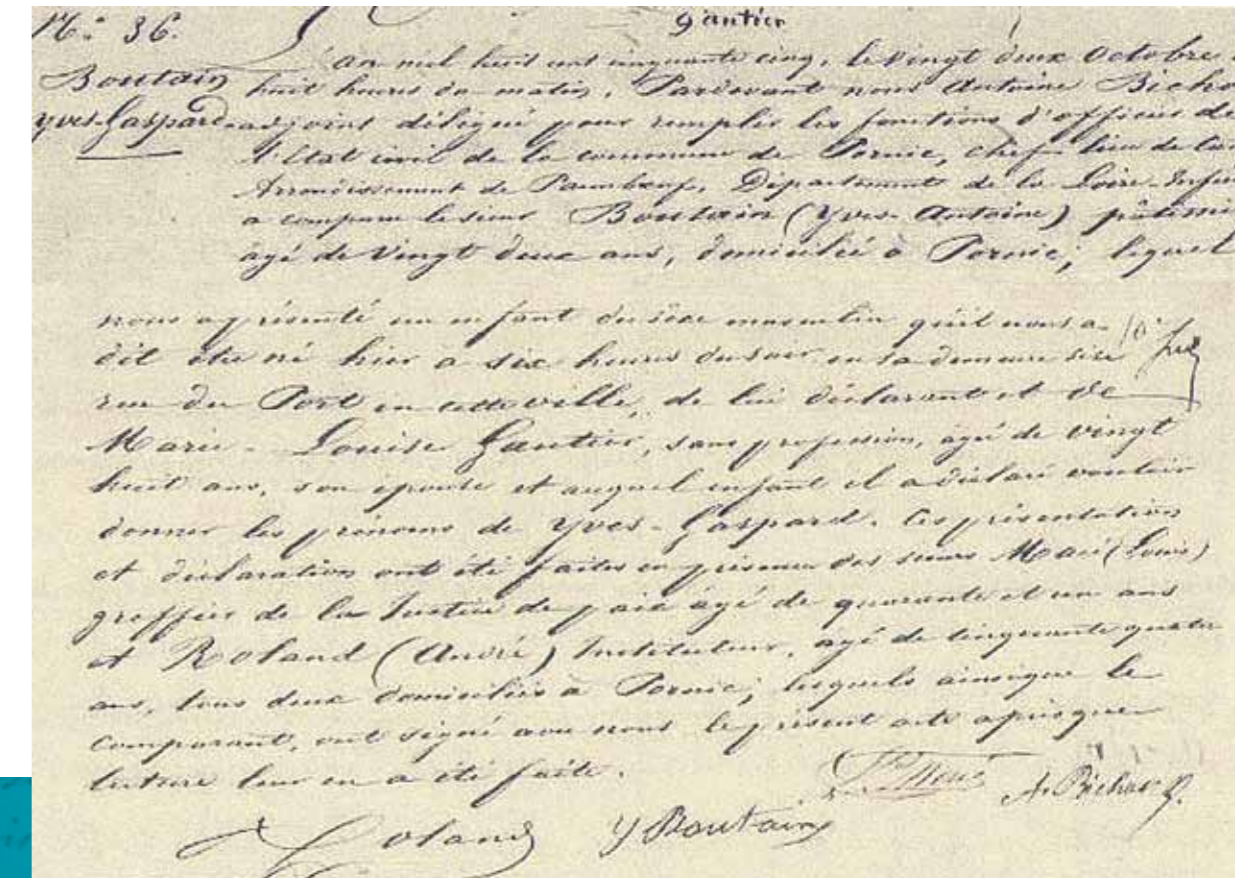 Gautier
N.° 36.
Boutain
Yves-Gaspard
L'an mil huit cent cinquante cinq, le vingt deux Octobre
huit heures du matin, Pardevant nous Antoine Bicho
adjoint délégué pour remplir les fonctions d'officier de
l'Etat civil de la commune de Pornic, chef-lieu de can
Arrondissement de Paimboeuf, Département de la Loire-Inféri
a comparu le sieur Boutain (Yves-Antoine)
âgé de vingt deux ans, domicilié à Pornic; lequel
nous a présenté un enfant du sèxe masculin qu'il nous a
dit être né hier a six heures du soir en sa demeure sise
rue du Port en cette ville, de lui déclarant et de
Marie-Louise Gautier, sans profession, âgé de vingt
huit ans, son épouse et auquel enfant il a déclaré vouloir
donner les prénoms de Yves-Gaspard. Ces présentation
et déclaration ont été faites en présence des sieurs Macé (Louis)
greffier de la Justice de paix âgé de quarante et un ans
et Roland (André) Instituteur, âgé de cinquante quatre
ans, tous deux domiciliés à Pornic; lesquels ainsi que le
comparant, ont signé avec nous le présent acte après que
lecture leur en a été faite.
Roland
Y Boutain